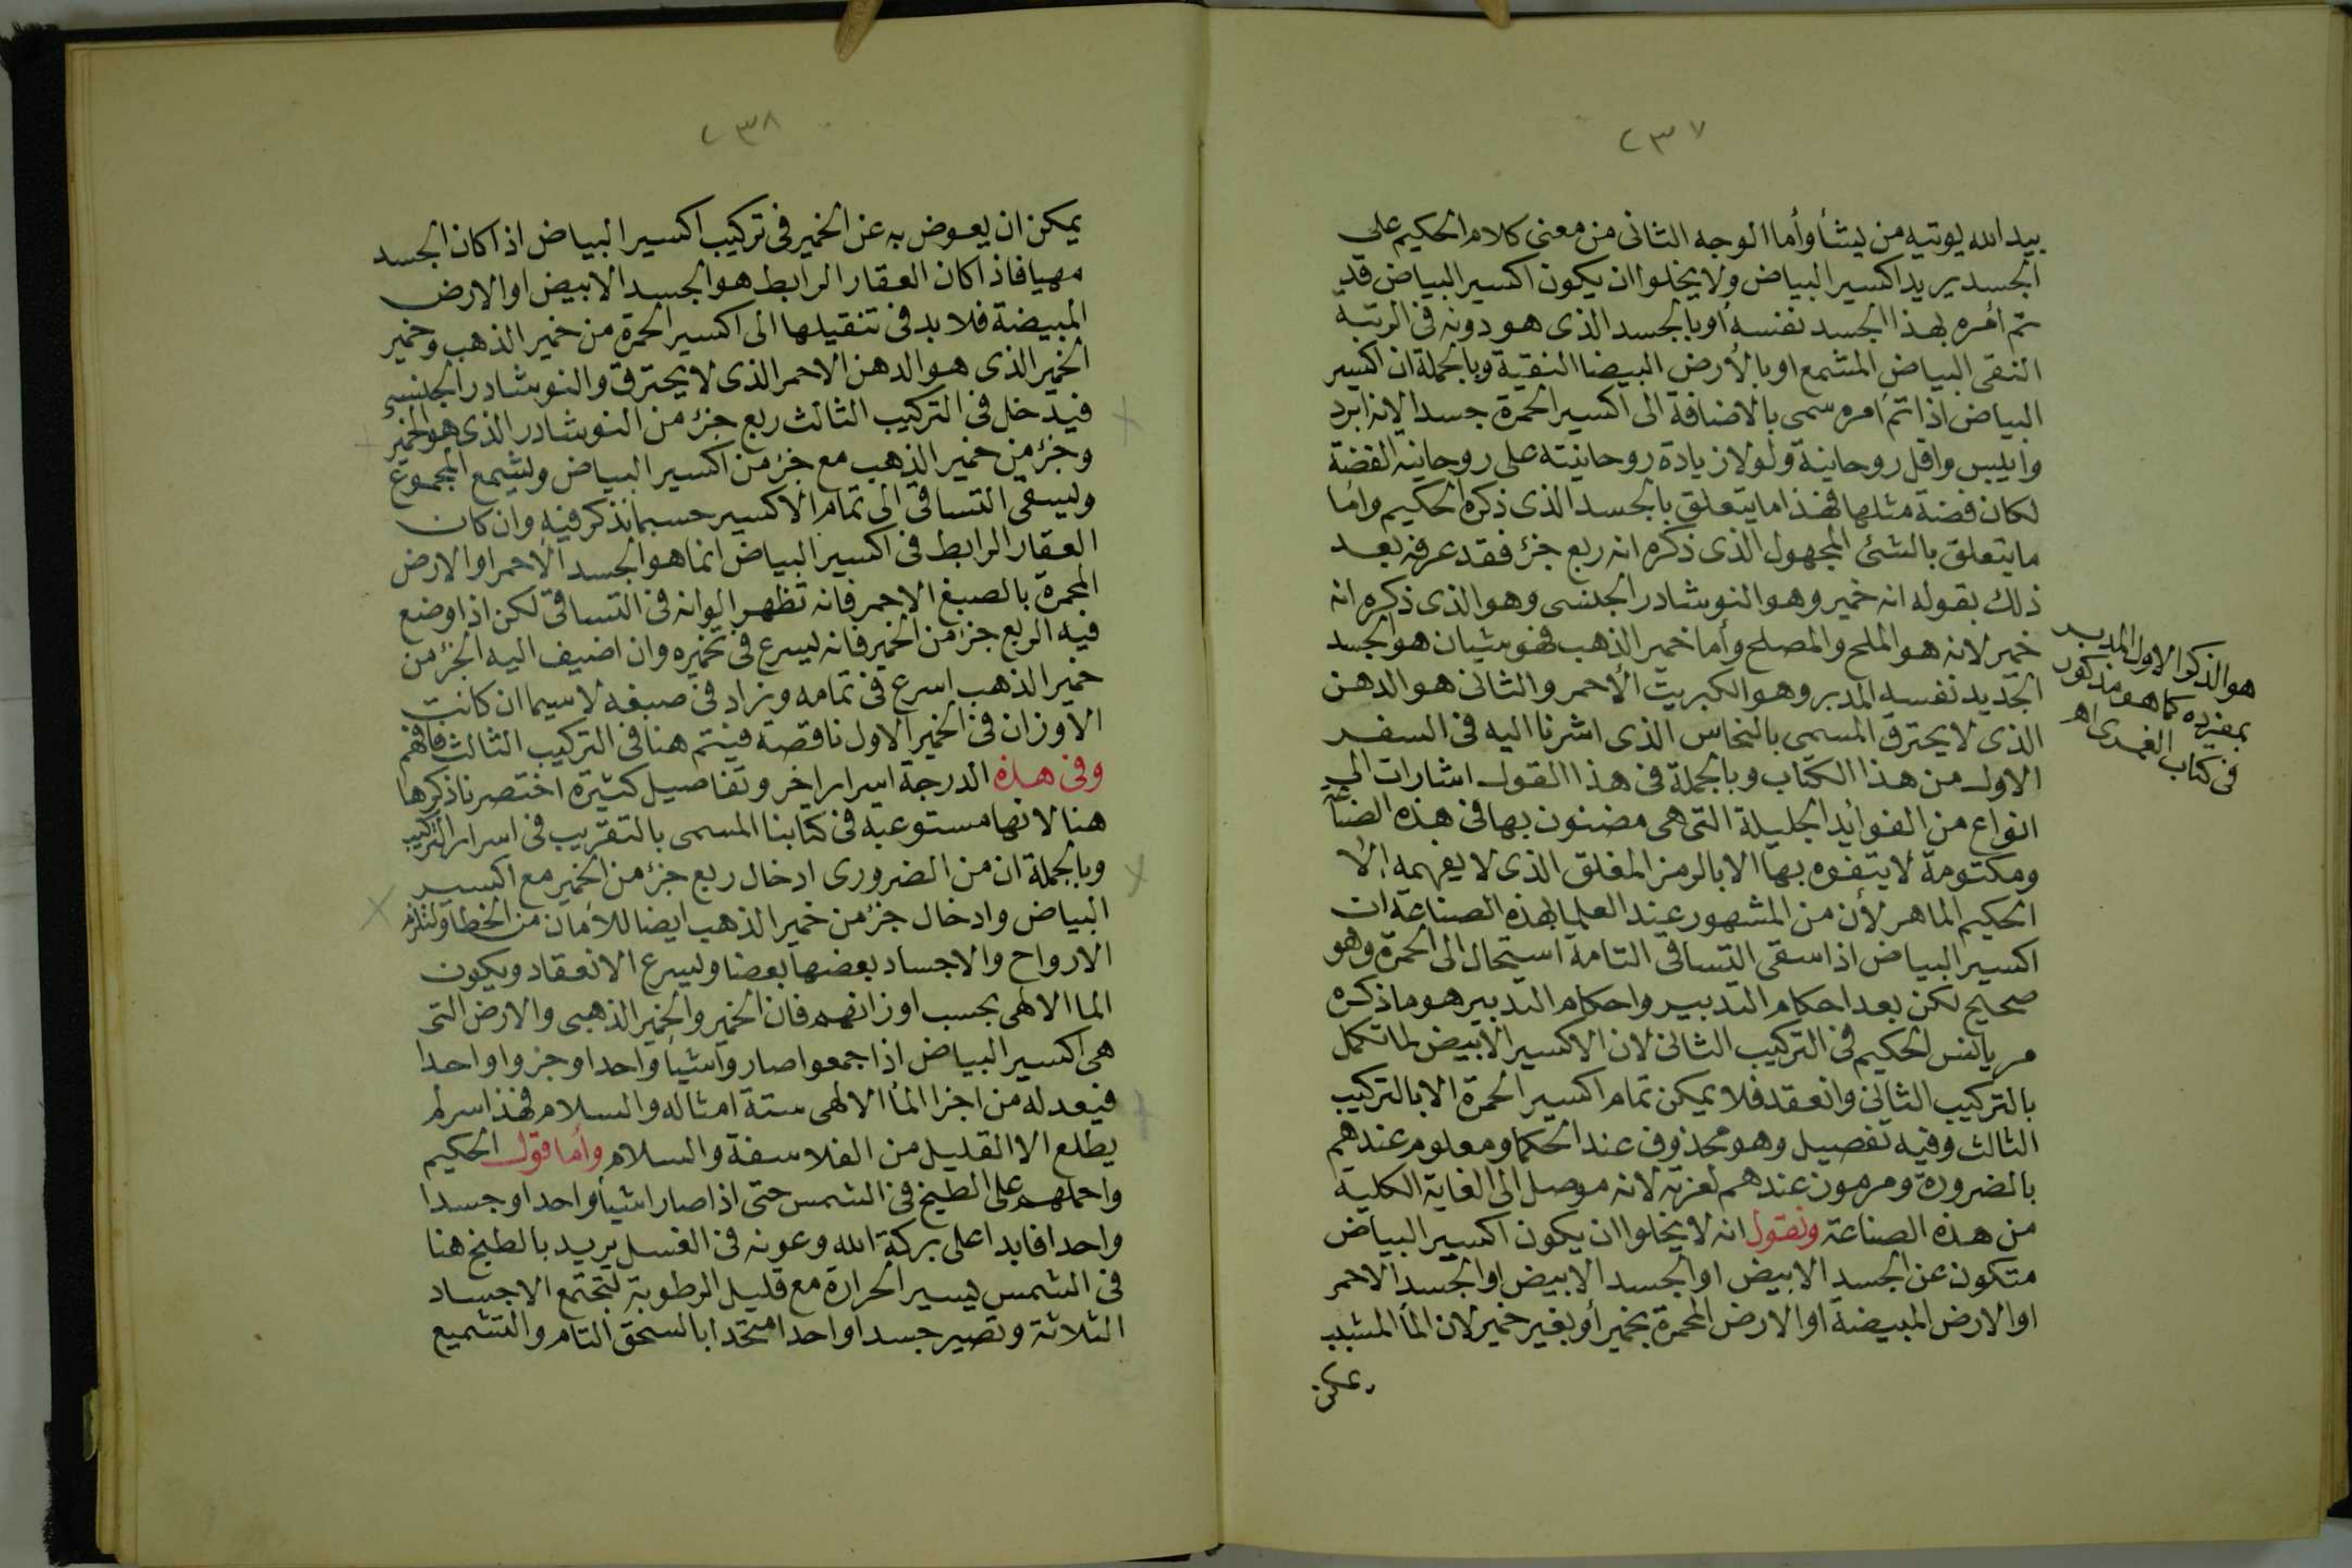 ٢٣٧
بيد الله يوتيه من يشأ وأما الوجه الثانى من معنى كلام الحكيم على
الجسد يريد اكسير البياض ولا يخلوا ان يكون اكسير البياض قد
تم أمره بهذا الجسد نفسه أو بالجسد الذى هو دونه فى الرتبة
النقى البياض المشمع او بالأرض البيضا النقية وبالجملة ان اكسير
البياض اذا تم امره سمى بالاضافة الى اكسير الحمرة جسدا لانه ابرد
وايبس واقل روحانية ولولا زيادة روحانيته على روحانيه الفضة
لكان فضة مثلها فهذا ما يتعلق بالجسد الذى ذكره الحكيم واما
ما يتعلق بالشئ المجهول الذى ذكره انه ربع جزؤ فقد عرفه بعد
ذلك بقوله انه خمير وهو النوشادر الجنسى وهو الذى ذكره انه
خمير لانه هو الملح والمصلح وأما خمير الذهب فهو شيان هو الجسد
الجديد نفسه المدبر وهو الكبريت الأحمر والثانى هو الدهن
الذى لا يحترق المسمى بالنحاس الذى اشرنا اليه فى السفر
الاول من هذا الكتاب وبالجملة فى هذا القول اشارات الى
انواع من الفوائد الجليلة التى هى مضنون بها فى هذه الصناعة
ومكتومة لا يتفوه بها الا بالرمز المغلق الذى لا يفهمه الا
الحكيم الماهر لأن من المشهور عند العلما بهذه الصناعة ان
اكسير البياض اذا سقى التساقى التامة استحال الى الحمرة وهو
صحيح لكن بعد احكام التدبير واحكام التدبير هو ما ذكره
مريانس الحكيم فى التركيب الثانى لان الاكسير الأبيض لما تكمل
بالتركيب الثانى وانعقد فلا يمكن تمام اكسير الحمرة الا بالتركيب
الثالث وفيه تفصيل وهو محذوف عند الحكما ومعلوم عندهم
بالضرورة ومرموز عندهم لعزته لانه موصل الى الغاية الكلية
من هذه الصناعة ونقول انه لا يخلوا ان يكون اكسير البياض
متكون عن الجسد الابيض او الجسد الابيض او الجسد الاحمر
او الارض المبيضة او الارض المحمرة بخمير أو بغير خمير لان المأ المشبب
يمكن
هو الذكر الاول المدبر
بمفرده كما هو مذكور
فى كتاب اه
٢٣٨
يمكن ان يعوض به عن الخمير فى تركيب اكسير البياض اذا كان الجسد
مهيا فاذا كان العقار الرابط هو الجسد الابيض او الارض
المبيضة فلا بد فى تنقيلها الى اكسير الحمرة من خمير الذهب وخمير
الخمير الذى هو الدهن الاحمر الذى لا يحترق والنوشادر الجنسى
فيدخل فى التركيب الثالث ربع جزؤ من النوشادر الذى هو الخمير
وجزؤ من خمير الذهب مع جزؤ من اكسير البياض ويشمع المجموع
ويسقى التساقى الى تمام الاكسير حسبما نذكر فيه وان كان
العقار الرابط فى اكسير البياض انما هو الجسد الاحمر او الارض
المحمرة بالصبغ الاحمر فانه تظهر الوانه فى التساقى لكن اذا وضع
فيه الربع جزؤ من الخمير فانه يسرع فى تخميره وان اضيف اليه الجزؤ من
خمير الذهب اسرع فى تمامه وزاد فى صبغه لا سيما ان كانت
الاوزان فى الخمير الاول ناقصة فيتم هنا فى التركيب الثالث فافهم
وفى هذه الدرجة اسرار اخر وتفاصيل كثيرة اختصرنا ذكرها
هنا لانها مستوعبة فى كتابنا المسمى بالتقريب فى اسرار التركيب
وبالجملة ان من الضرورى ادخال ربع جزؤ من الخمير مع اكسير
البياض وادخال جزؤ من خمير الذهب ايضا للأمان من الخطا ولتلزم
الارواح والاجساد بعضها بعضا ويسرع الانعقاد ويكون
الما الالهى بحسب اوزانهم فان الخمير والخمير الذهبى والارض التى
هى اكسير البياض اذا جمعوا صاروا شيأ واحدا وجزوا واحدا
فيعد له من اجزا المأ الالهى ستة امثاله والسلام فهذا سر لم
يطلع الا القليل من الفلاسفة والسلام وأما قول الحكيم
واحملهم على الطبخ فى الشمس حتى اذا صارا شيأ واحدا وجسدا
واحدا فابدا على بركة الله وعونه فى الغسل يريد بالطبخ هنا
فى الشمس يسير الحرارة مع قليل الرطوبة لتجتمع الاجساد
الثلاثة وتصير جسدا واحدا متحدا بالسحق التام والتشميع